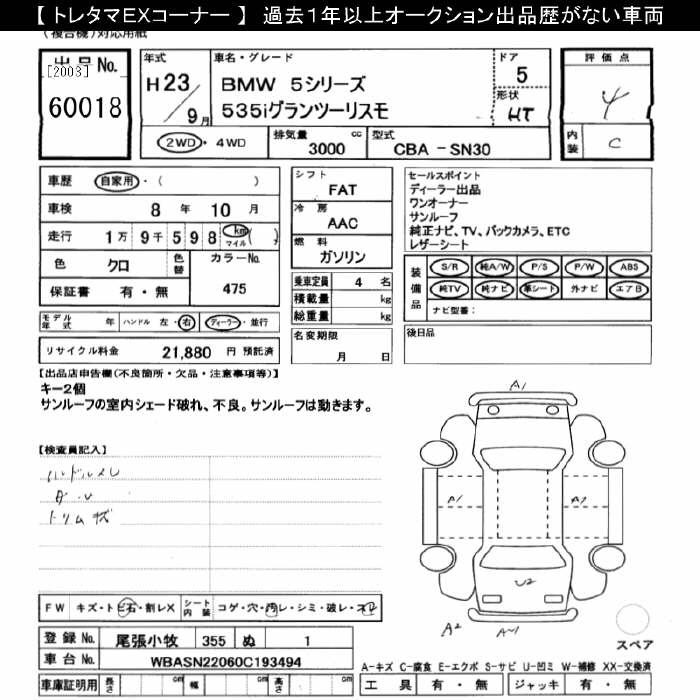 【 トレタマEXコーナー 】 過去1年以上オークション出品歴がない車両
(複合機)対応用紙
出品No.
[2003]
60018
年式
H23/9月
車名・グレード
BMW 5シリーズ
535iグランツーリスモ
ドア
5
形状
HT
評価点
4
内装
C
2WD・4WD
排気量
3000 cc
型式
CBA - SN30
車歴
自家用・( )
車検
8 年 10 月
走行
1万 9千 5 9 8 km マイル ( )
色
クロ
色替
カラーNo.
475
保証書 有・無
モデル年式 年 ハンドル 左・右 ディーラー・並行
リサイクル料金 21,880 円 預託済
シフト
FAT
冷房
AAC
燃料
ガソリン
乗車定員 4 名
積載量 kg
総重量 kg
名変期限
月 日
セールスポイント
ディーラー出品
ワンオーナー
サンルーフ
純正ナビ、TV、バックカメラ、ETC
レザーシート
装備品
S/R 純A/W P/S P/W ABS
純TV 純ナビ 革シート 外ナビ エアB
ナビ型番:
後日品
【出品店申告欄(不良箇所・欠品・注意事項等)】
キー2個
サンルーフの室内シェード破れ、不良。サンルーフは動きます。
【検査員記入】
ハンドルスレ
トリムキズ
A1
A1
A2
U2
A2
FW キズ・トビ石・割レX シート内装 コゲ・穴・汚レ・シミ・破レ・スレ
登録No. 尾張小牧 355 ぬ 1
車台No. WBASN22060C193494
車庫証明用 長さ cm 幅 cm 高さ cm
スペア
A-キズ C-腐食 E-エクボ S-サビ U-凹ミ W-補修 XX-交換済
工具 有・無 ジャッキ 有・無